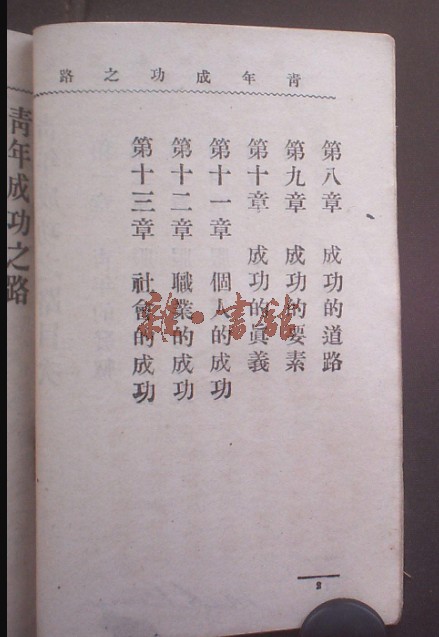 靑年成功之路
第八章 成功的道路
第九章 成功的要素
第十章 成功的眞義
第十一章 個人的成功
第十二章 職業的成功
第十三章 社會的成功
2
靑年成功之路